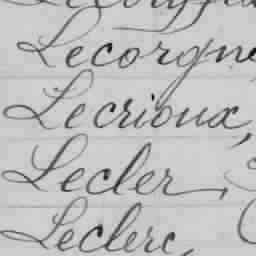 Lecorgne
Lecrioux,
Lecler,
Leclerc,